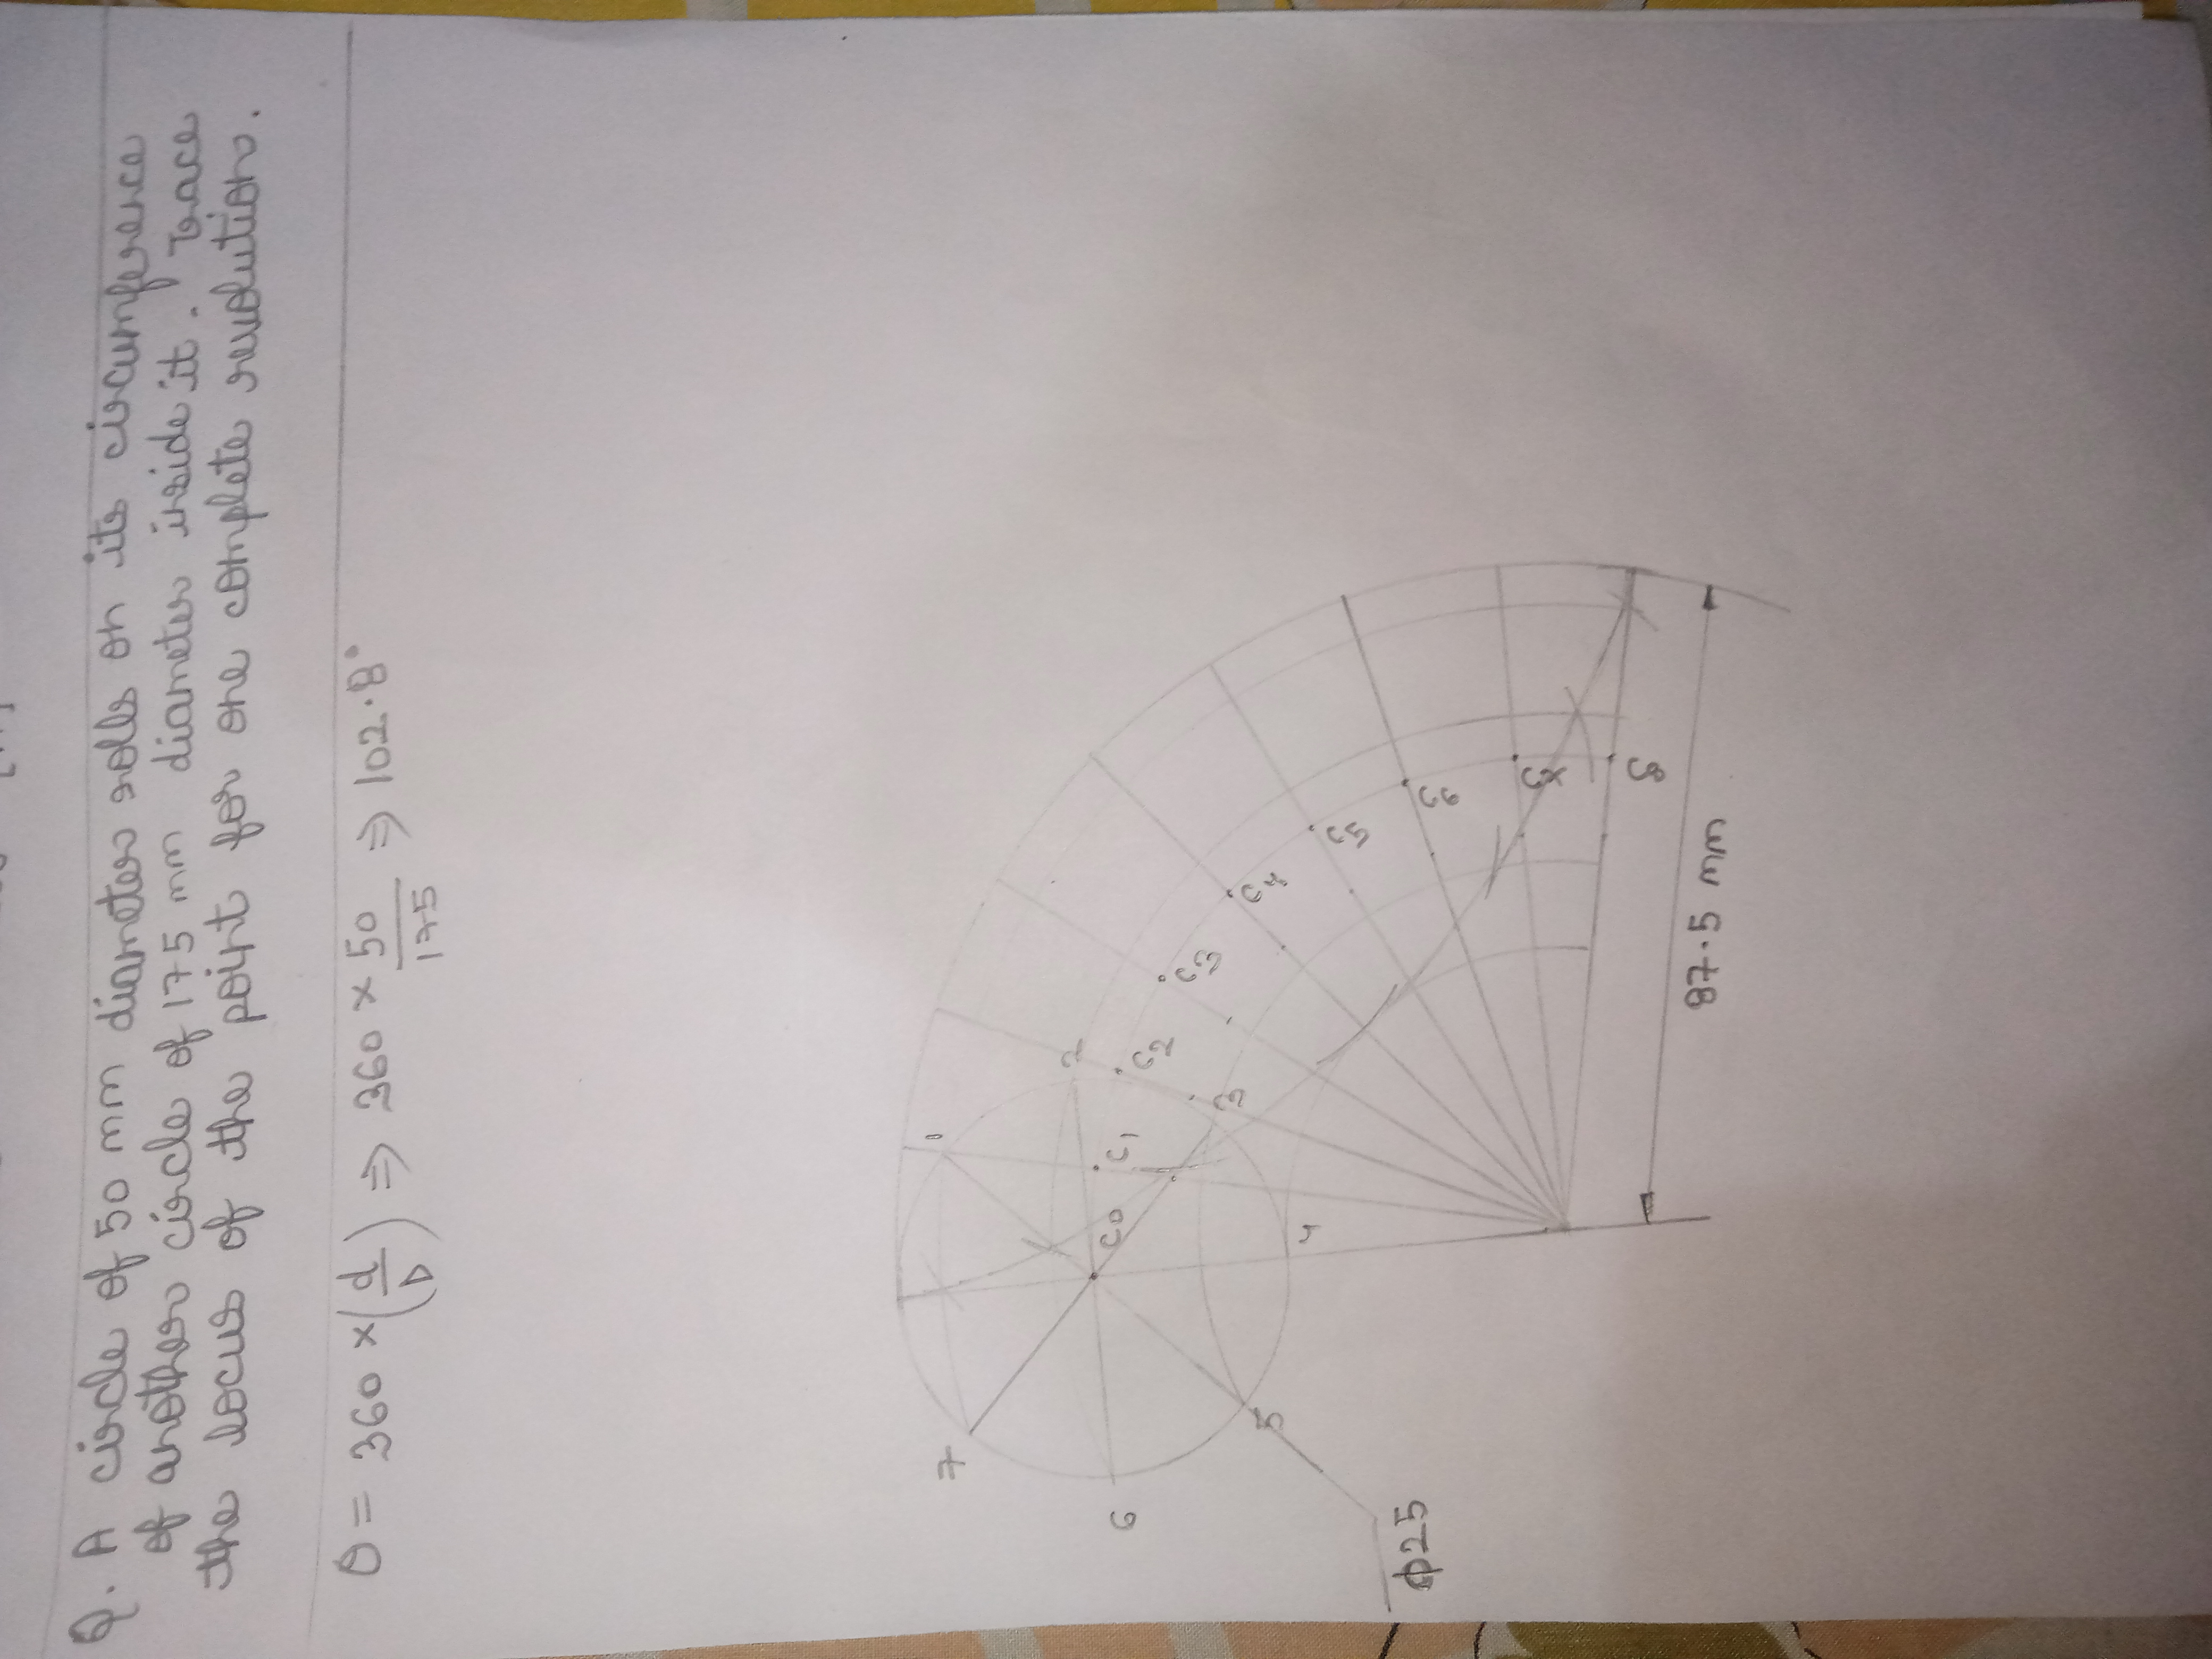 Q. A circle of 50 mm diameter rolls on its circumference
of another circle of 175 mm diameter inside it. Trace
the locus of the point for one complete revolution.
θ = 360 × (d/D) ⇒ 360 × 50/175 ⇒ 102.8°
1
2
3
4
5
6
7
C0
C1
C2
C3
C4
C5
C6
C7
C8
87.5 mm
ϕ25